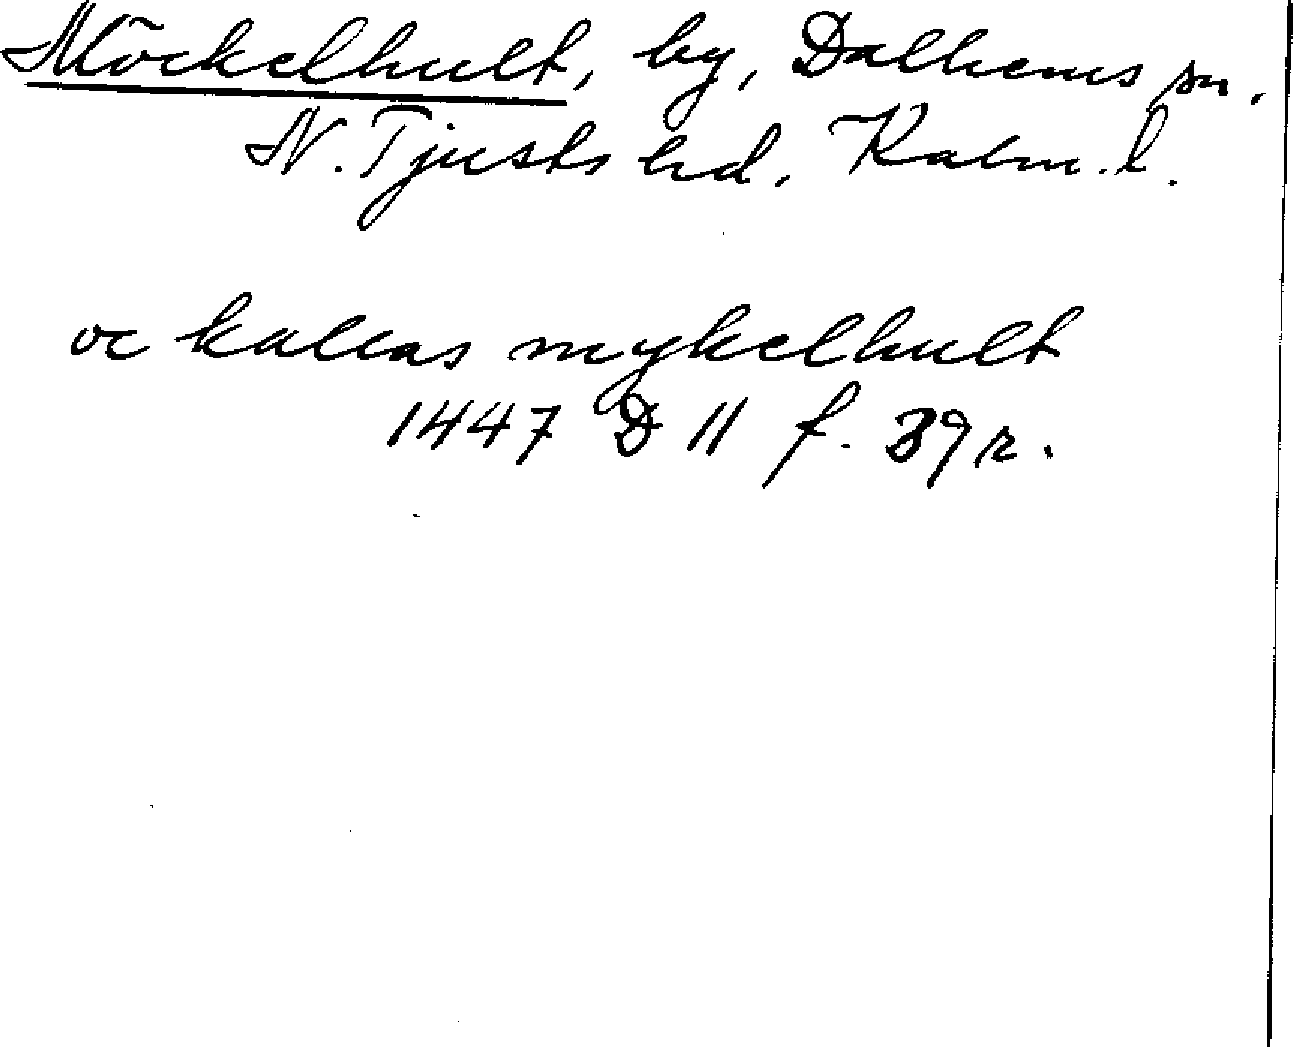 Möckelhult, by, Dalhems sn.
N. Tjusts hd. Kalm. l.
oc kallas mykelhult
1447 D 11 f. 39 r.